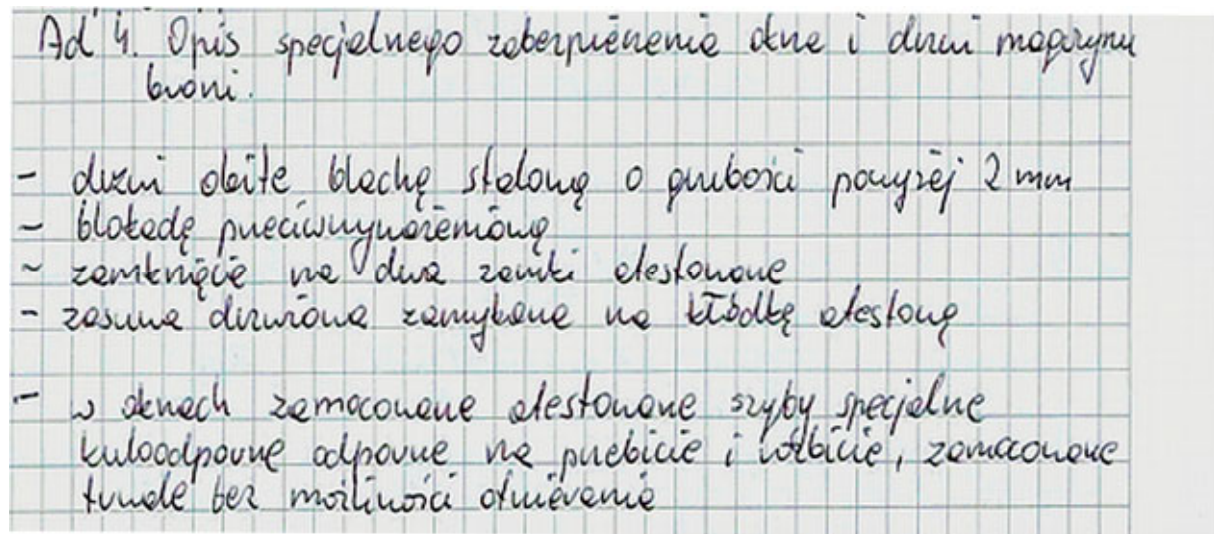 Ad 4. Opis specjalnego zabezpieczenia okna i drzwi magazynu
broni.
- drzwi obite blachą stalową o grubości powyżej 2 mm
- blokadę przeciwwyważeniową
- zamknięcie na dwa zamki atestowane
- zasuwa drzwiowa zamykana na kłódkę atestową
- w oknach zamocowane atestowane szyby specjalne
kuloodporne odporne na przebicie i rozbicie, zamocowane
trwale bez możliwości otwierania